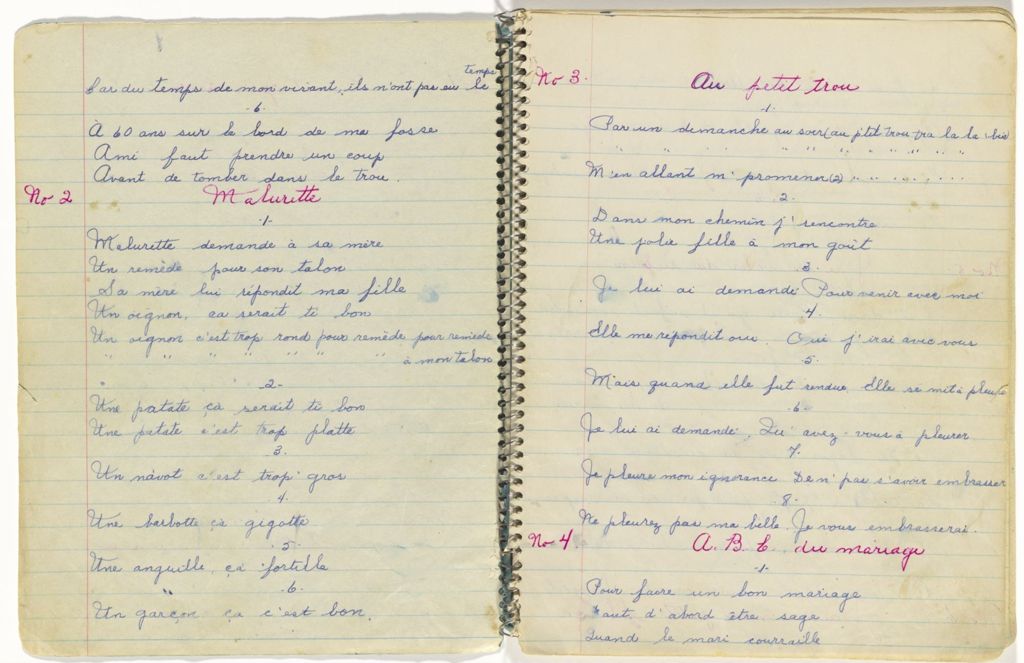 Car du temps de mon vivant, ils n'ont pas eu le temps
-6-
À 60 ans sur le bord de ma fosse
Ami faut prendre un coup
Avant de tomber dans le trou.
No 2 Malurette
-1-
Malurette demande à sa mère
Un remède pour son talon
Sa mère lui répondit ma fille
Un oignon, ça serait ti bon
Un oignon c'est trop rond pour remède pour remède
" " " " " " " à mon talon
-2-
Une patate ça serait ti bon
Une patate c'est trop platte
3.
Un navot c'est trop gros
4.
Une barbotte ça gigotte
5.
Une anguille, ça fortille
-6-
Un garçon ça c'est bon.
No 3. Au petit trou
-1-
Par un demanche au soir (au ptit trou tra la la
M'en allant m' promener (2) " " " " "
-2-
Dans mon chemin j' rencontre
Une jolie fille à mon goût
3.
Je lui ai demandé Pour venir avec moi
4.
Elle me repondit oui. Oui j'irai avec vous
5.
Mais quand elle fut rendue. Elle se mit à pleurer
-6-
Je lui ai demandé. Qu' avez-vous à pleurer
7.
Je pleure mon ignorance De n' pas s'avoir embrasser
-8-
Ne pleurez pas ma belle. Je vous embrasserai.
No 4. A. B. C. du mariage
-1-
Pour faire un bon mariage
Faut d'abord être sage
Quand le mari courraille